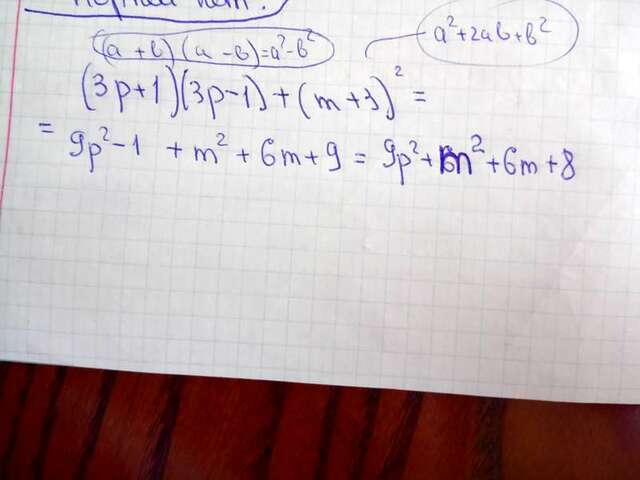 (a+b)(a-b)=a²-b²
a²+2ab+b²
(3p+1)(3p-1)+(m+3)²=
=9p²-1 +m²+6m+9=9p²+m²+6m+8